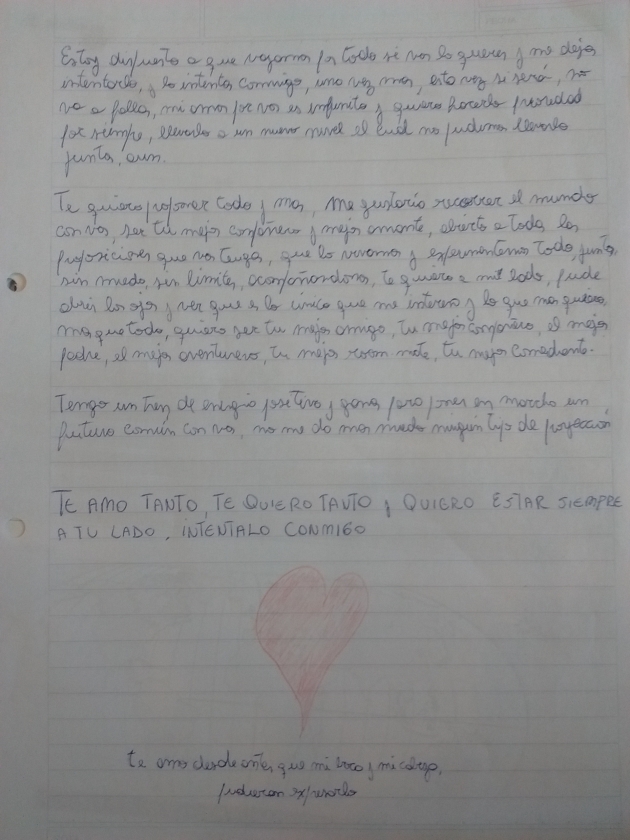 Estoy dispuesto a que vayamos por todo si vos lo queres y me dejas
intentarlo, y lo intentas conmigo, una vez mas, esta vez si será, no
va a fallar, mi amor por vos es infinito y quiero hacerlo prioridad
por siempre, llevarlo a un nuevo nivel el cuál no pudimos llevarlo
juntos, aun.
Te quiero proponer todo y mas, me gustaria recorrer el mundo
con vos, ser tu mejor compañero y mejor amante, abierto a todas las
proposiciones que vos tengas, que lo vivamos y experimentemos todo, juntos,
sin miedo, sin limites, acompañandonos, te quiero a mi lado, pude
abrir los ojos y ver que es lo único que me interesa y lo que mas quiero,
mas que todo, quiero ser tu mejor amigo, tu mejor compañero, el mejor
padre, el mejor aventurero, tu mejor room mate, tu mejor comediante.
Tengo un tren de energia positiva y ganas para poner en marcha un
futuro común con vos, no me da mas miedo ningun tipo de proyección
TE AMO TANTO, TE QUIERO TANTO Y QUIERO ESTAR SIEMPRE
A TU LADO. INTENTALO CONMIGO
te amo desde antes que mi boca y mi cabeza,
pudieran expresarlo